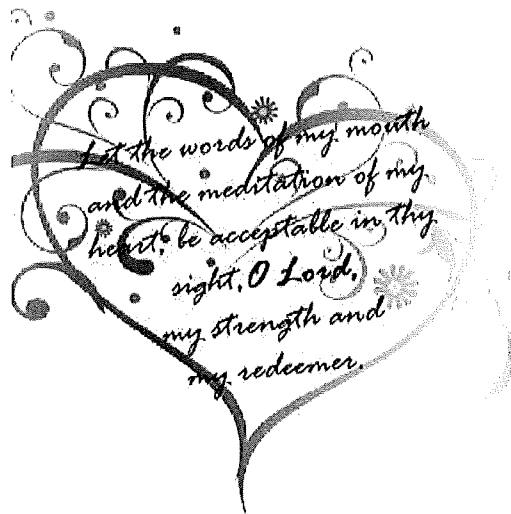 Let the words of my mouth
and the meditation of my
heart, be acceptable in thy
sight, O Lord,
my strength and
my redeemer.